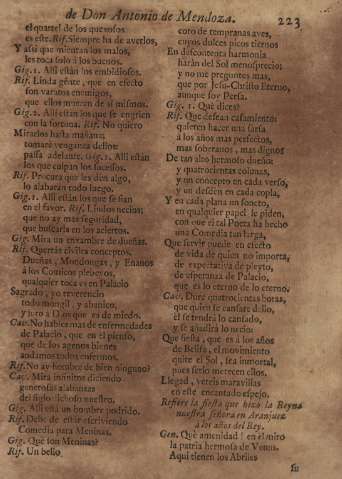 de Don Antonio de Mendoza. 223
el quartel de los quexosos
es este. Rif. Siempre ha de averlos,
Y assi que mientan los malos,
les toca solo à los buenos.
Gig. 1. Alli estàn los embidiosos.
Rif. Linda gente, que en efecto
son varatos enemigos,
que ellos mueren de sì mismos.
Gig. 2. Alli estàn los que se engrien
con la fortuna. Rif. No quiero
Mirarlos hasta mañana;
tomarè venganza dellos:
passa adelante. Gig. 1. Alli estàn
los que culpan los sucessos.
Rif. Procura que les den algo,
lo alabaràn todo luego.
Gig. 1. Alli estàn los que se fian
en el favor. Rif. Lindos necios;
que no ay mas seguridad,
que buscarla en los aciertos.
Gig. Mira un enxambre de dueñas.
Rif. Querràs civiles conceptos.
Dueñas, Mondongas, y Enanos
à los Comicos plebeyos,
qualquier toca es en Palacio
Sagrado, yo reverencio
todo mongil, y abanico,
y juro à Dios que es de miedo.
Cav. No hables mas de enfermedades
de Palacio, que en el pienso,
que de los agenos bienes
andamos todos enfermos.
Rif. No ay hombre de bien ninguno?
Cav. Mira infinitos diciendo
generosas alabanzas
del siglo dichoso nuestro.
Gig. Alli està un hombre podrido.
Rif. Debe de estar escriviendo
Comedia para Meninas.
Gig. Què son Meninas?
Rif. Un bello
coro de tempranas aves,
cuyos dulces picos tiernos
En discontenta harmonia
haràn del Sol menosprecio;
y no me preguntes mas,
que por Jesu-Christo Eterno,
aunque sor Persa.
Gig. 1. Què dices?
Rif. Que desean casamiento:
quieren hacer una farsa
à los años mas perfectos,
mas soberanos, mas dignos
De tan alto hermoso dueño:
y quatrocientas colunas,
y un concepto en cada verso,
y un desden en cada copla,
Y en cada plana un soneto,
en qualquier papel le piden,
con que el tal Poeta ha hecho
una Comedia tan larga,
Que servir puede en efecto
de vida de quien no importa,
de expectativa de pleyto,
de esperanza de Palacio,
que es lo eterno de lo eterno.
Cav. Dure quatrocientas horas,
que quien se cansare dello,
èl se tendrà lo cansado,
y se ajustarà lo necio:
Que fiesta, que es à los años
de Belisa, el movimiento
quite el Sol, sea inmortal,
pues serlo merecen ellos.
Llegad, vereis maravillas
en este encantado espejo.
Refiere la fiesta que hizo la Reyna
nuestra señora en Aranjuez
à los años del Rey.
Gen. Què amenidad! en el mirto
la patria hermosa de Venus.
Aqui tienen los Abriles
su